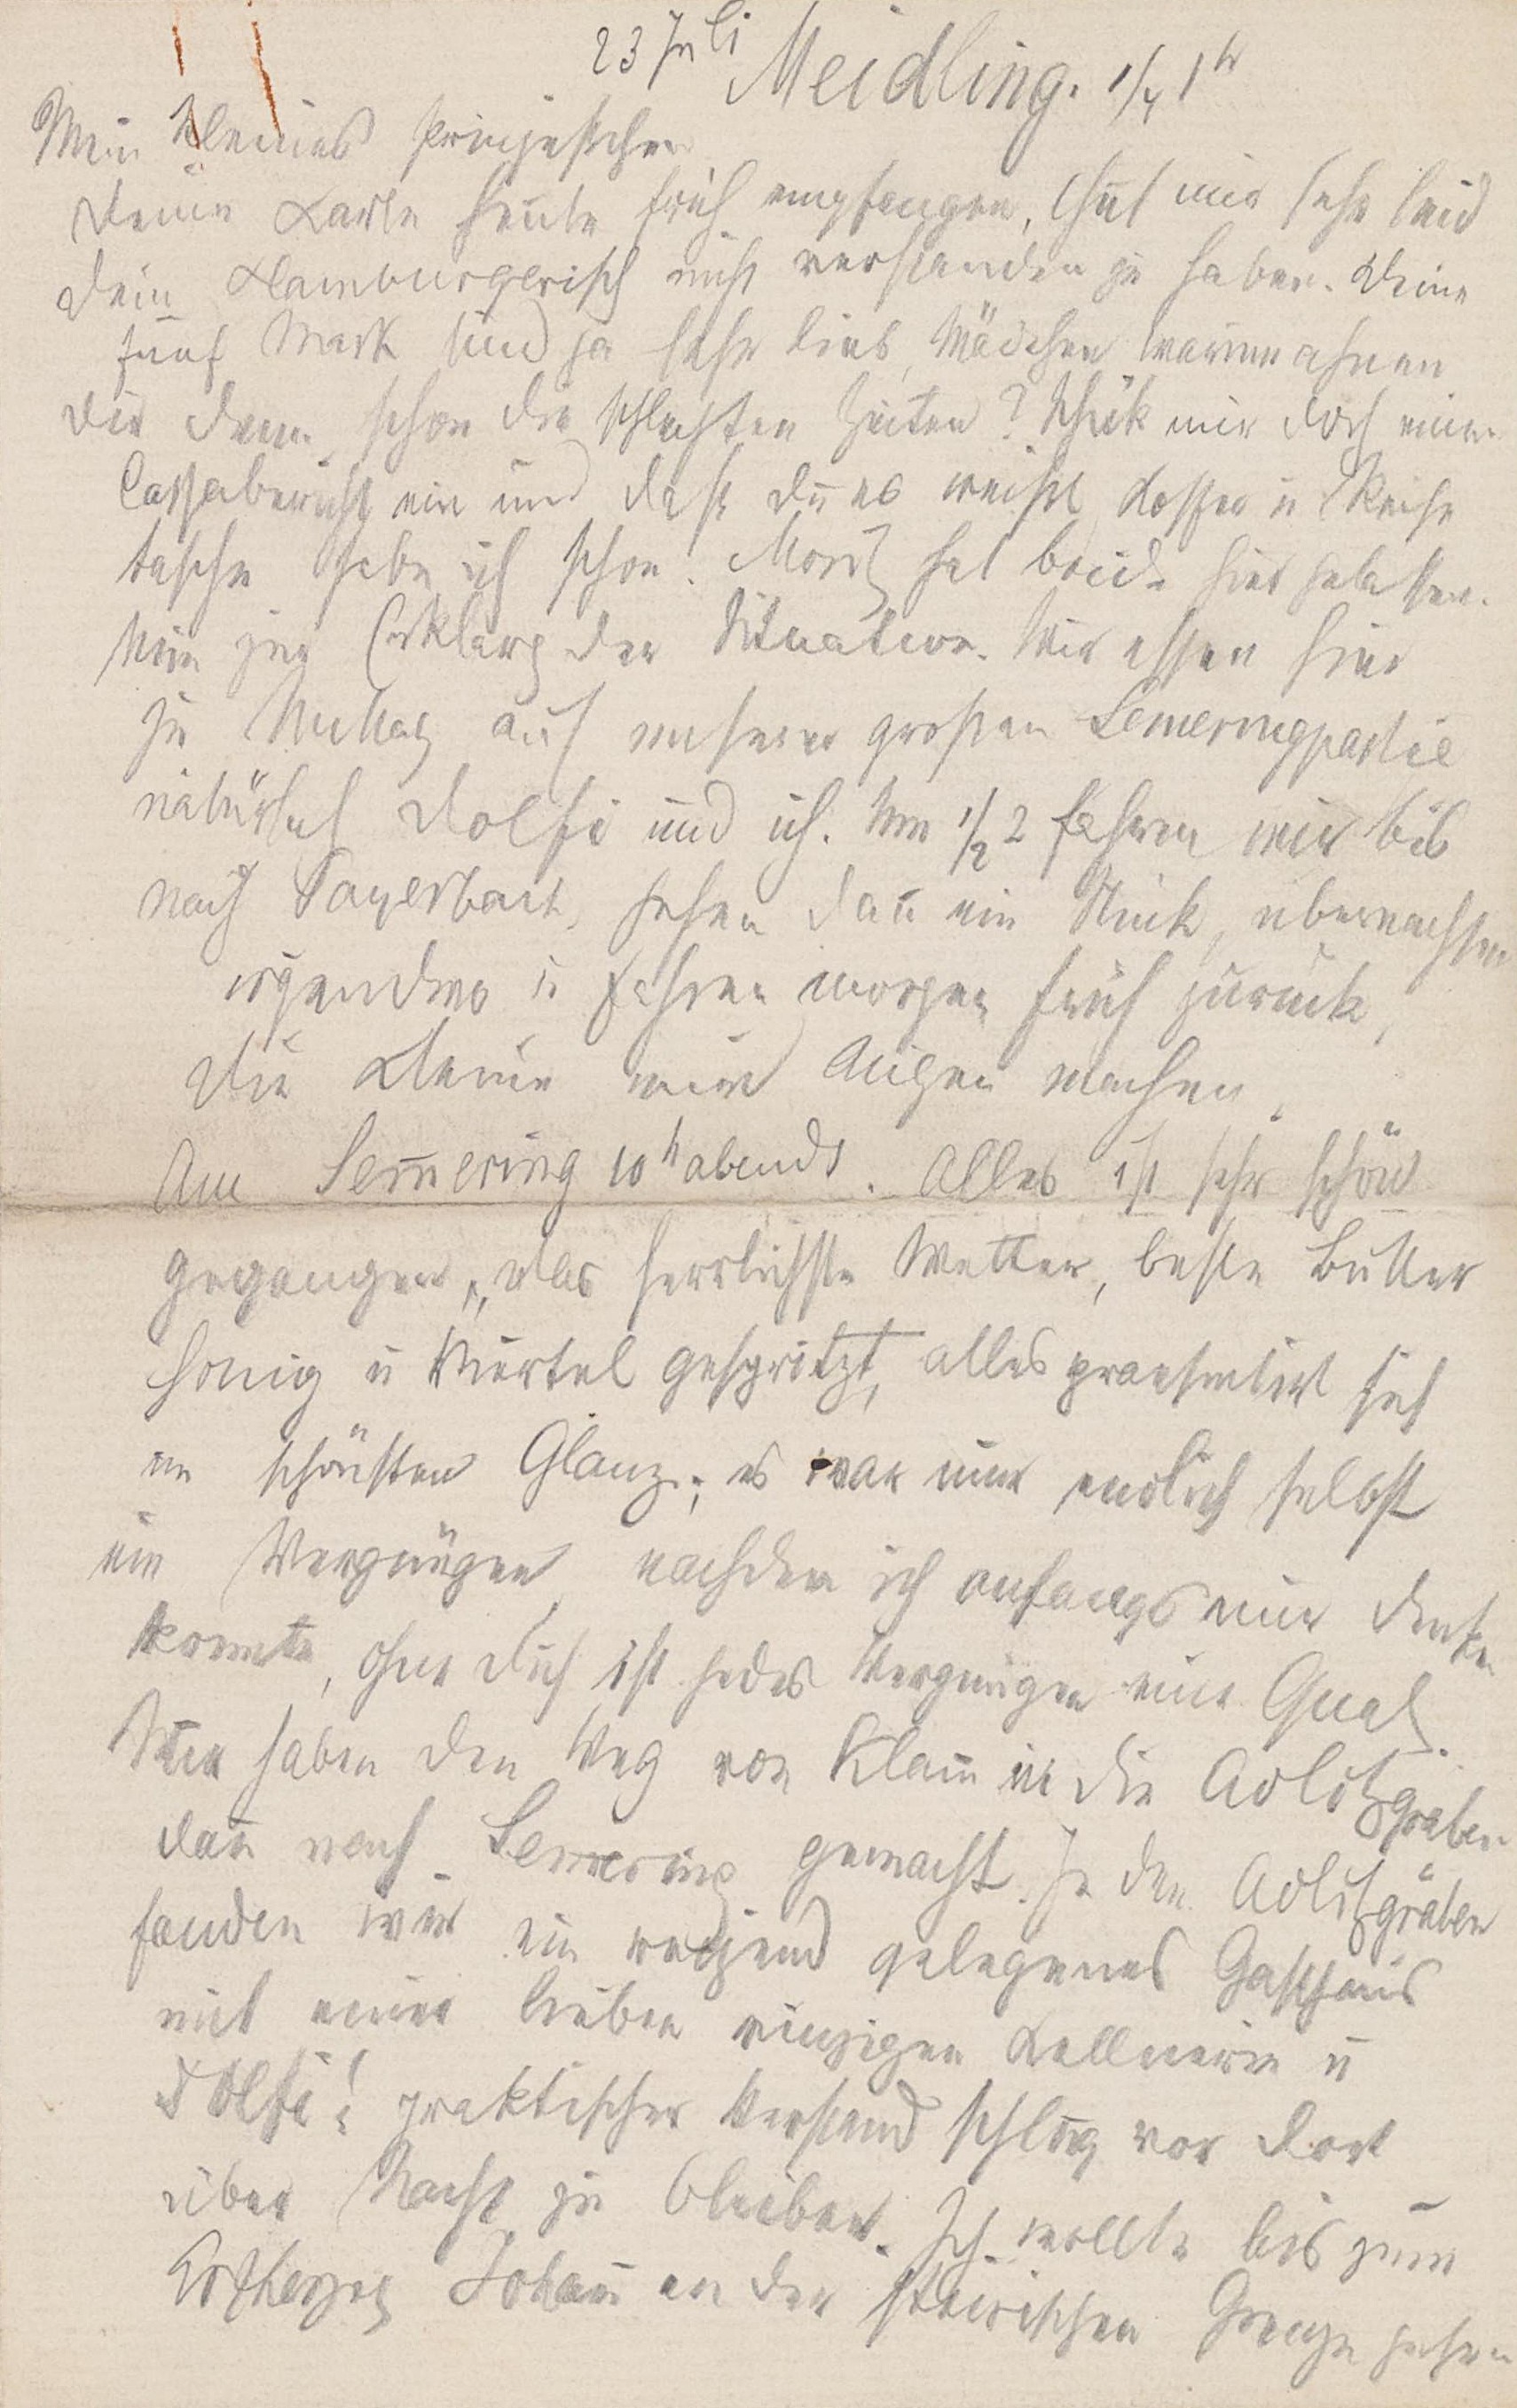 23 Juli Meidling. 1/4 1h
Mein kleines Prinzeßchen
Deine Karte heute früh empfangen, thut mir sehr leid
Dein Hamburgerisch nicht verstanden zu haben. Deine
fünf Mark sind ja sehr lieb, Mädchen warum ahnen
dir denn schon die schlechten Zeiten? Schick mir doch einen
Cassabericht ein und daß du es weißt Koffer u Reise
tasche habe ich schon. Moriz hat beide hier gelassen.
Nun zur Erklarg der Situation. Wir essen hier
zu Mittag auf unserer großen Semeringpartie
natürlich Dolfi und ich. Um 1/2 2 fahren wir bis
nach Payerbach, gehen dan̄ ein Stück, übernachten
irgendwo u fahren morgen früh zurück,
die Kleine wird Augen machen.
Am Sem̄ering 10h abends. Alles ist sehr schön
gegangen, das herrlichste Wetter, beste Butter
Honig u Viertel gespritzt, alles praesentirt sich
im schönsten Glanz; es war mir endlich selbst
ein Vergnügen, nachdem ich anfangs nur denken
konnte, ohne Dich ist jedes Vergnügen eine Qual.
Wir haben den Weg von Klam̄ in die Adlitzgräben
dan̄ nach Semering gemacht. In den Adlitzgräben
fanden wir ein reizend gelegenes Gasthaus
mit einer lieben einzigen Kellnerin u
Dolfi! praktischer Verstand schlug vor dort
über Nacht zu bleiben. Ich wollte bis zum
Erzherzog Johan̄ an der steirischen Grenze gehen